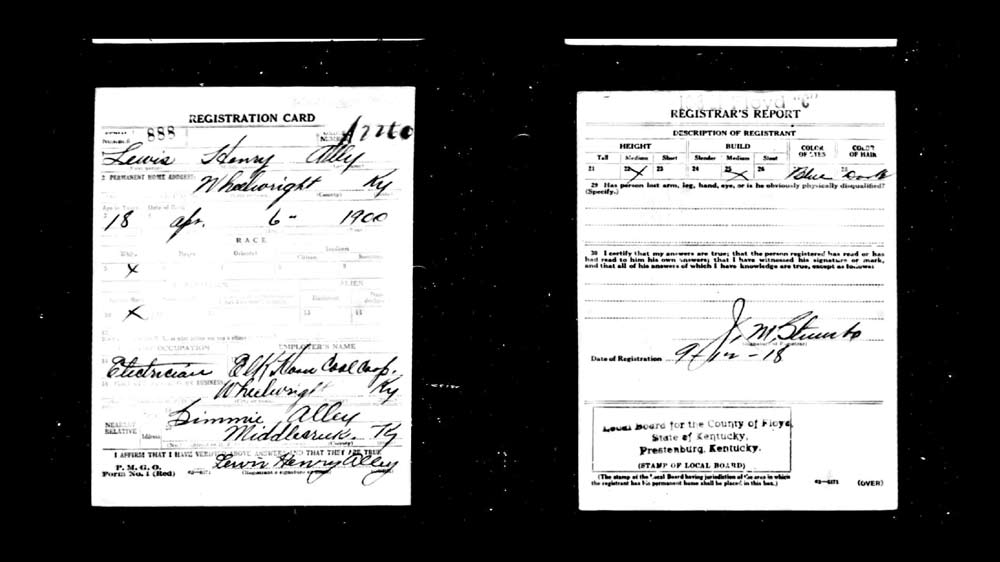 REGISTRATION CARD
888
Lewis Henry Alley
2 PERMANENT HOME ADDRESS:
Wheelwright Ky
18 apr. 6- 1900
RACE
White Negro Oriental
X
X
OCCUPATION EMPLOYER'S NAME
Electrician Elk Horn Coal Corp.
Wheelwright Ky
NEAREST RELATIVE
Alley
Ky
I AFFIRM THAT I HAVE VERIFIED ABOVE ANSWERS AND THAT THEY ARE TRUE
P. M. G. O.
Form No. 1 (Red)
Lewis Henry Alley
REGISTRAR'S REPORT
DESCRIPTION OF REGISTRANT
HEIGHT BUILD COLOR OF EYES COLOR OF HAIR
Tall Medium Short Slender Medium Stout
21 22 X 23 24 25 X 26 Blue Dark
29 Has person lost arm, leg, hand, eye, or is he obviously physically disqualified?
(Specify.)
30 I certify that my answers are true; that the person registered has read or has
had read to him his own answers; that I have witnessed his signature or mark,
and that all of his answers of which I have knowledge are true, except as follows:
J. M. Stumbo
Date of Registration 9-12-18
Local Board for the County of Floyd,
State of Kentucky,
Prestenburg, Kentucky.
(STAMP OF LOCAL BOARD)
(The stamp of the Local Board having jurisdiction of the area in which
the registrant has his permanent home shall be placed in this box.)
(OVER)